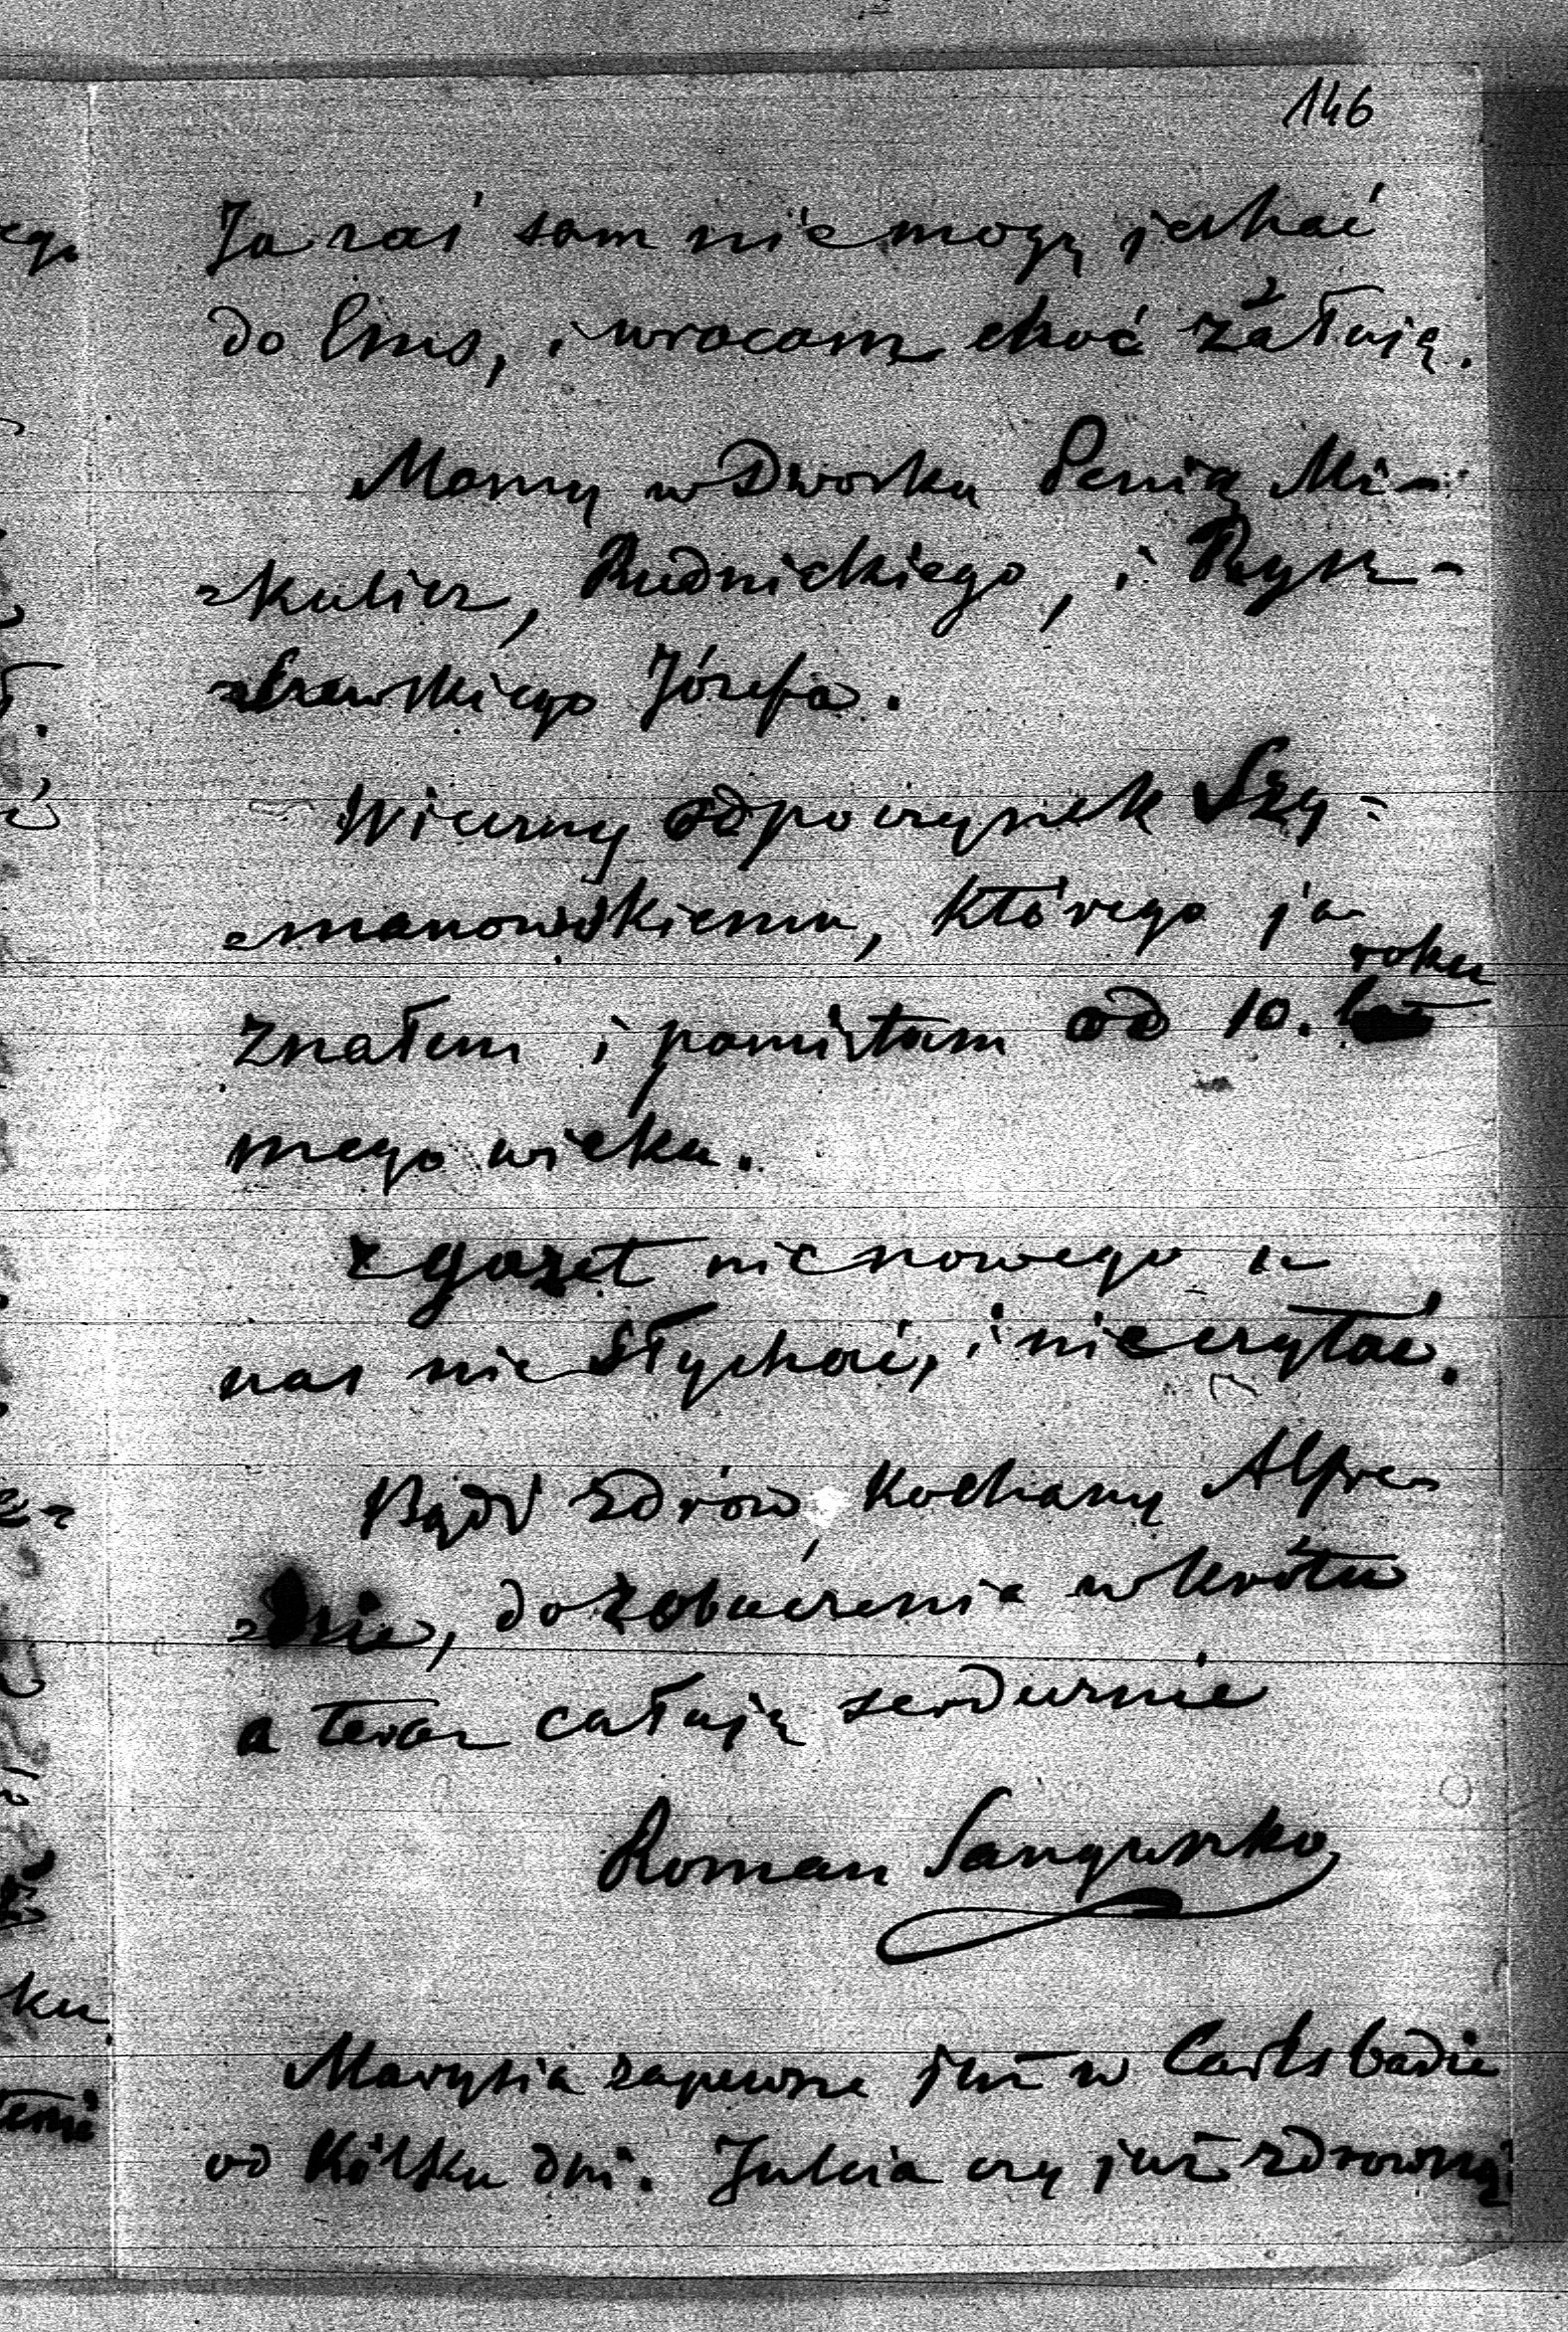 146
Ja zaś sam nie mogę jechać
do Ems, i wracam choć żałuję.
Mamy w Dworku Penią Mi-
-kulicz, Rudnickiego, i Rysz-
-czewskiego Józefa.
Wieczny odpoczynek Szy-
-manowskiemu, którego ja
roku
znałem i pamiętam od 10.
mego wieku.
Z gazet nic nowego u
nas nie słychać, i nie czytać.
Bądź zdrów, Kochany Alfre-
-dzie, do zobaczenia wkrótce
a teraz całuję serdecznie
Roman Sanguszko
Marysia zapewne już w Carlsbadzie
od kilku dni. Julcia czy już